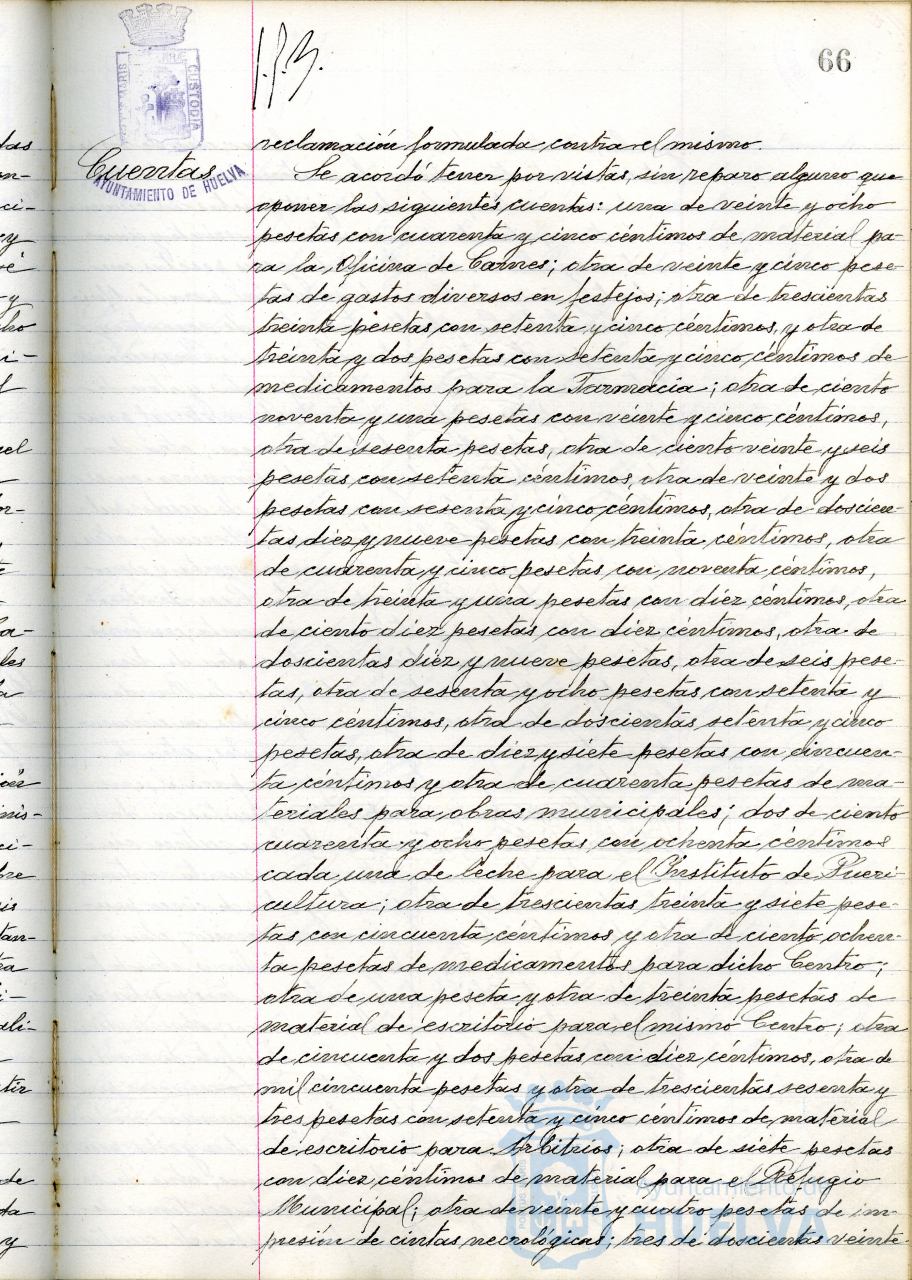 66
reclamación formulada contra el mismo.
Cuentas
AYUNTAMIENTO DE HUELVA
Se acordó tener por vistas, sin reparo alguno que
oponer las siguientes cuentas: una de veinte y ocho
pesetas con cuarenta y cinco céntimos de material pa-
ra la Oficina de Carnes; otra de veinte y cinco pese-
tas de gastos diversos en festejos; otra de trescientas
treinta pesetas con setenta y cinco céntimos, y otra de
treinta y dos pesetas con setenta y cinco céntimos de
medicamentos para la Farmacia; otra de ciento
noventa y una pesetas con veinte y cinco céntimos,
otra de sesenta pesetas, otra de ciento veinte y seis
pesetas con setenta céntimos, otra de veinte y dos
pesetas con sesenta y cinco céntimos, otra de doscien-
tas diez y nueve pesetas con treinta céntimos, otra
de cuarenta y cinco pesetas con noventa céntimos,
otra de treinta y una pesetas con diez céntimos, otra
de ciento diez pesetas con diez céntimos, otra de
doscientas diez y nueve pesetas, otra de seis pese-
tas, otra de sesenta y ocho pesetas con setenta y
cinco céntimos, otra de doscientas setenta y cinco
pesetas, otra de diez y siete pesetas con cincuen-
ta céntimos y otra de cuarenta pesetas de ma-
teriales para obras municipales; dos de ciento
cuarenta y ocho pesetas con ochenta céntimos
cada una de leche para el Instituto de Pueri
cultura; otra de trescientas treinta y siete pese-
tas con cincuenta céntimos y otra de ciento ochen-
ta pesetas de medicamentos para dicho Centro;
otra de una peseta y otra de treinta pesetas de
material de escritorio para el mismo Centro; otra
de cincuenta y dos pesetas con diez céntimos, otra de
mil cincuenta pesetas y otra de trescientas sesenta y
tres pesetas con setenta y cinco céntimos de material
de escritorio para Arbitrios; otra de siete pesetas
con diez céntimos de material para el Refugio
Municipal; otra de veinte y cuatro pesetas de im-
presión de cintas necrológicas; tres de doscientas veinte-
Ayuntamiento de
HUELVA